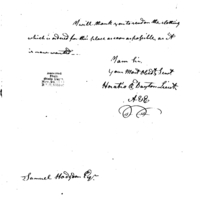 I will thank you to send on the clothing
which is ordered for this place as soon as possible, as it
is now wanted
I am Sir
your Most Obdt Servt
Horatio R Dayton Lieut
Samuel Hodgdon Esqr